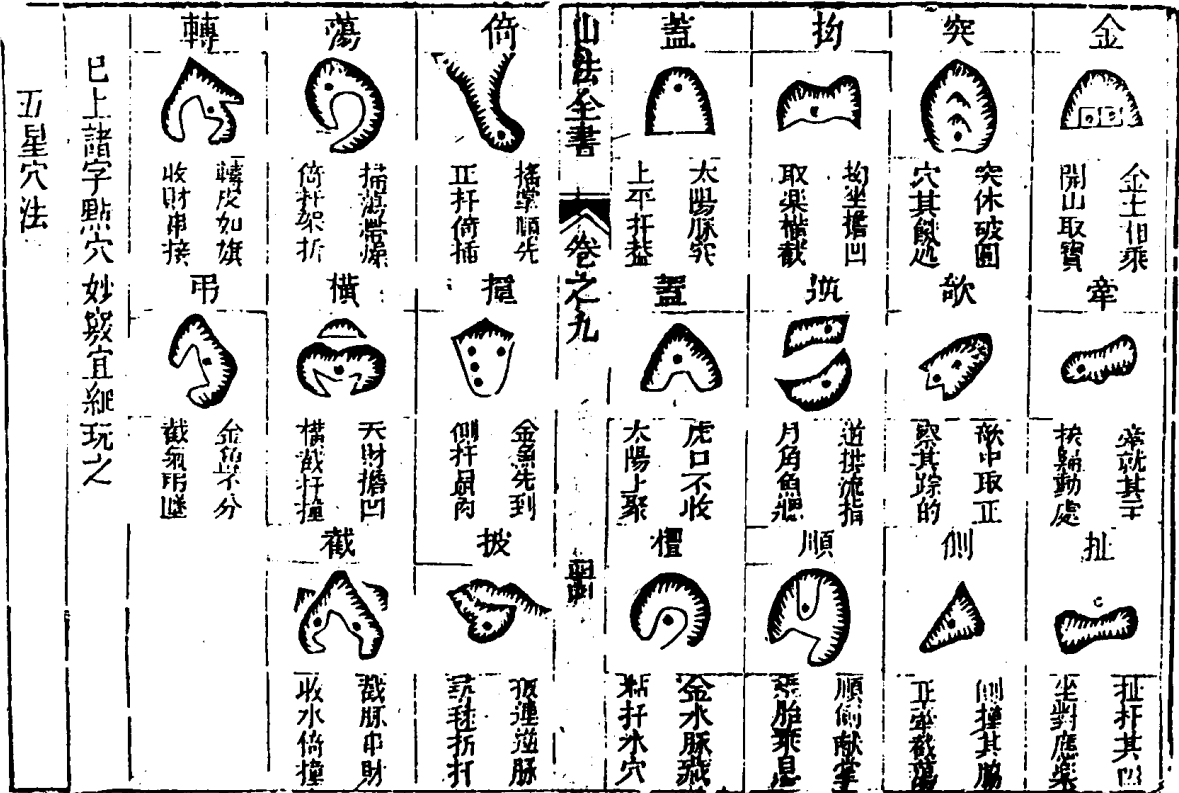 金
金土相乘
開山取寶
牽
牽就其
挨歸動處
扯
扯扞其凹
坐對應樂
突
突休破圓
穴其饑處
欹
欹中取正
察其踪的
側
側撞其腦
正牽截蕩
拗
拗坐擔凹
取樂橫截
逆
逆拱流指
月角魚腮
順
順倘献掌
乘胎乘息
蓋
太陽脉突
上平扞葢
蓋
虎口不收
太陽上聚
金水脉藏
粘扞水穴
山法全書
卷之九
倚
搖掌順先
正扞倚插
撞
金魚先到
側扞肩肉
披
披連逆脉
毬折扞
蕩
掃蕩帶燥
倚扞架折
橫
天財擔凹
橫截扞撞
截
截脉串財
收水倚撞
轉
轉皮如旗
收財串接
弔
金魚不分
截氣弔墜
已上諸字點穴妙竅宜細玩之
五星穴法